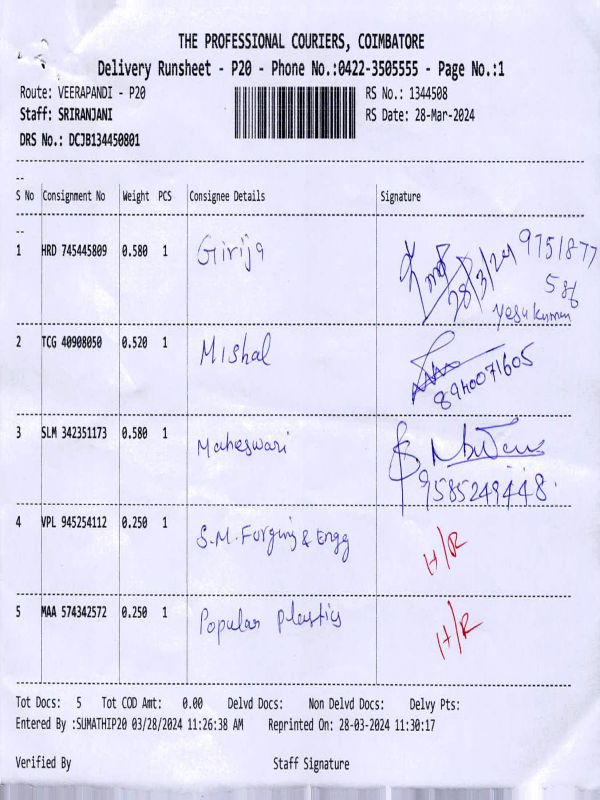 THE PROFESSIONAL COURIERS, COIMBATORE
Delivery Runsheet - P20 - Phone No.:0422-3505555 - Page No.:1
Route: VEERAPANDI - P20 RS No.: 1344508
Staff: SRIRANJANI RS Date: 28-Mar-2024
DRS No.: DCJB134450801
S No Consignment No Weight PCS Consignee Details Signature
1 HRD 745445809 0.580 1 Girija 28/3/24 9751877
58
Yesu Kumar
2 TCG 40908050 0.520 1 Mishal 8940071605
3 SLM 342351173 0.580 1 Maheswari
9585249448.
4 VPL 945254112 0.250 1 S.M. Forging & Engg H/R
5 MAA 574342572 0.250 1 Popular Plastics H/R
Tot Docs: 5 Tot COD Amt: 0.00 Delvd Docs: Non Delvd Docs: Delvy Pts:
Entered By :SUMATHIP20 03/28/2024 11:26:38 AM Reprinted On: 28-03-2024 11:30:17
Verified By Staff Signature